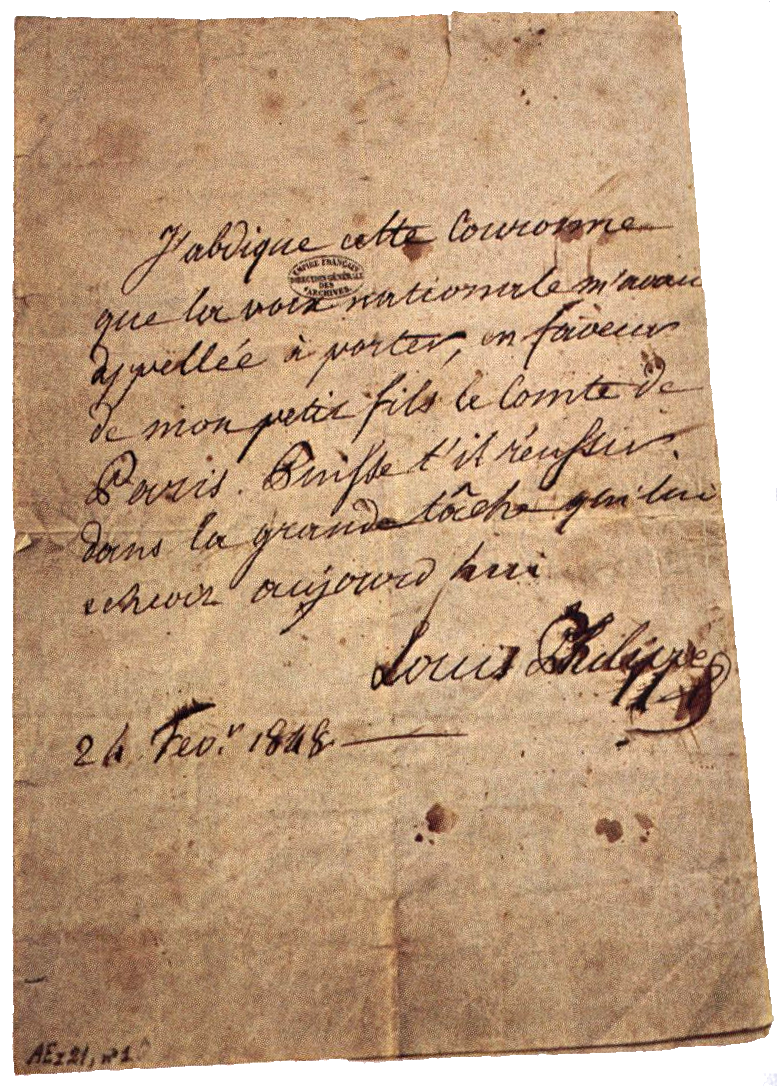 J'abdique cette Couronne
EMPIRE FRANÇAIS
DIRECTION GÉNÉRALE
DES
ARCHIVES
que la voix nationale m'avait
appellée à porter, en faveur
de mon petit fils le Comte de
Paris. Puisse t'il réussir
dans la grande tâche qui lui
echeoit aujourd'hui
Louis Philippe
24 Fevr. 1848
AE I 21, n° 1